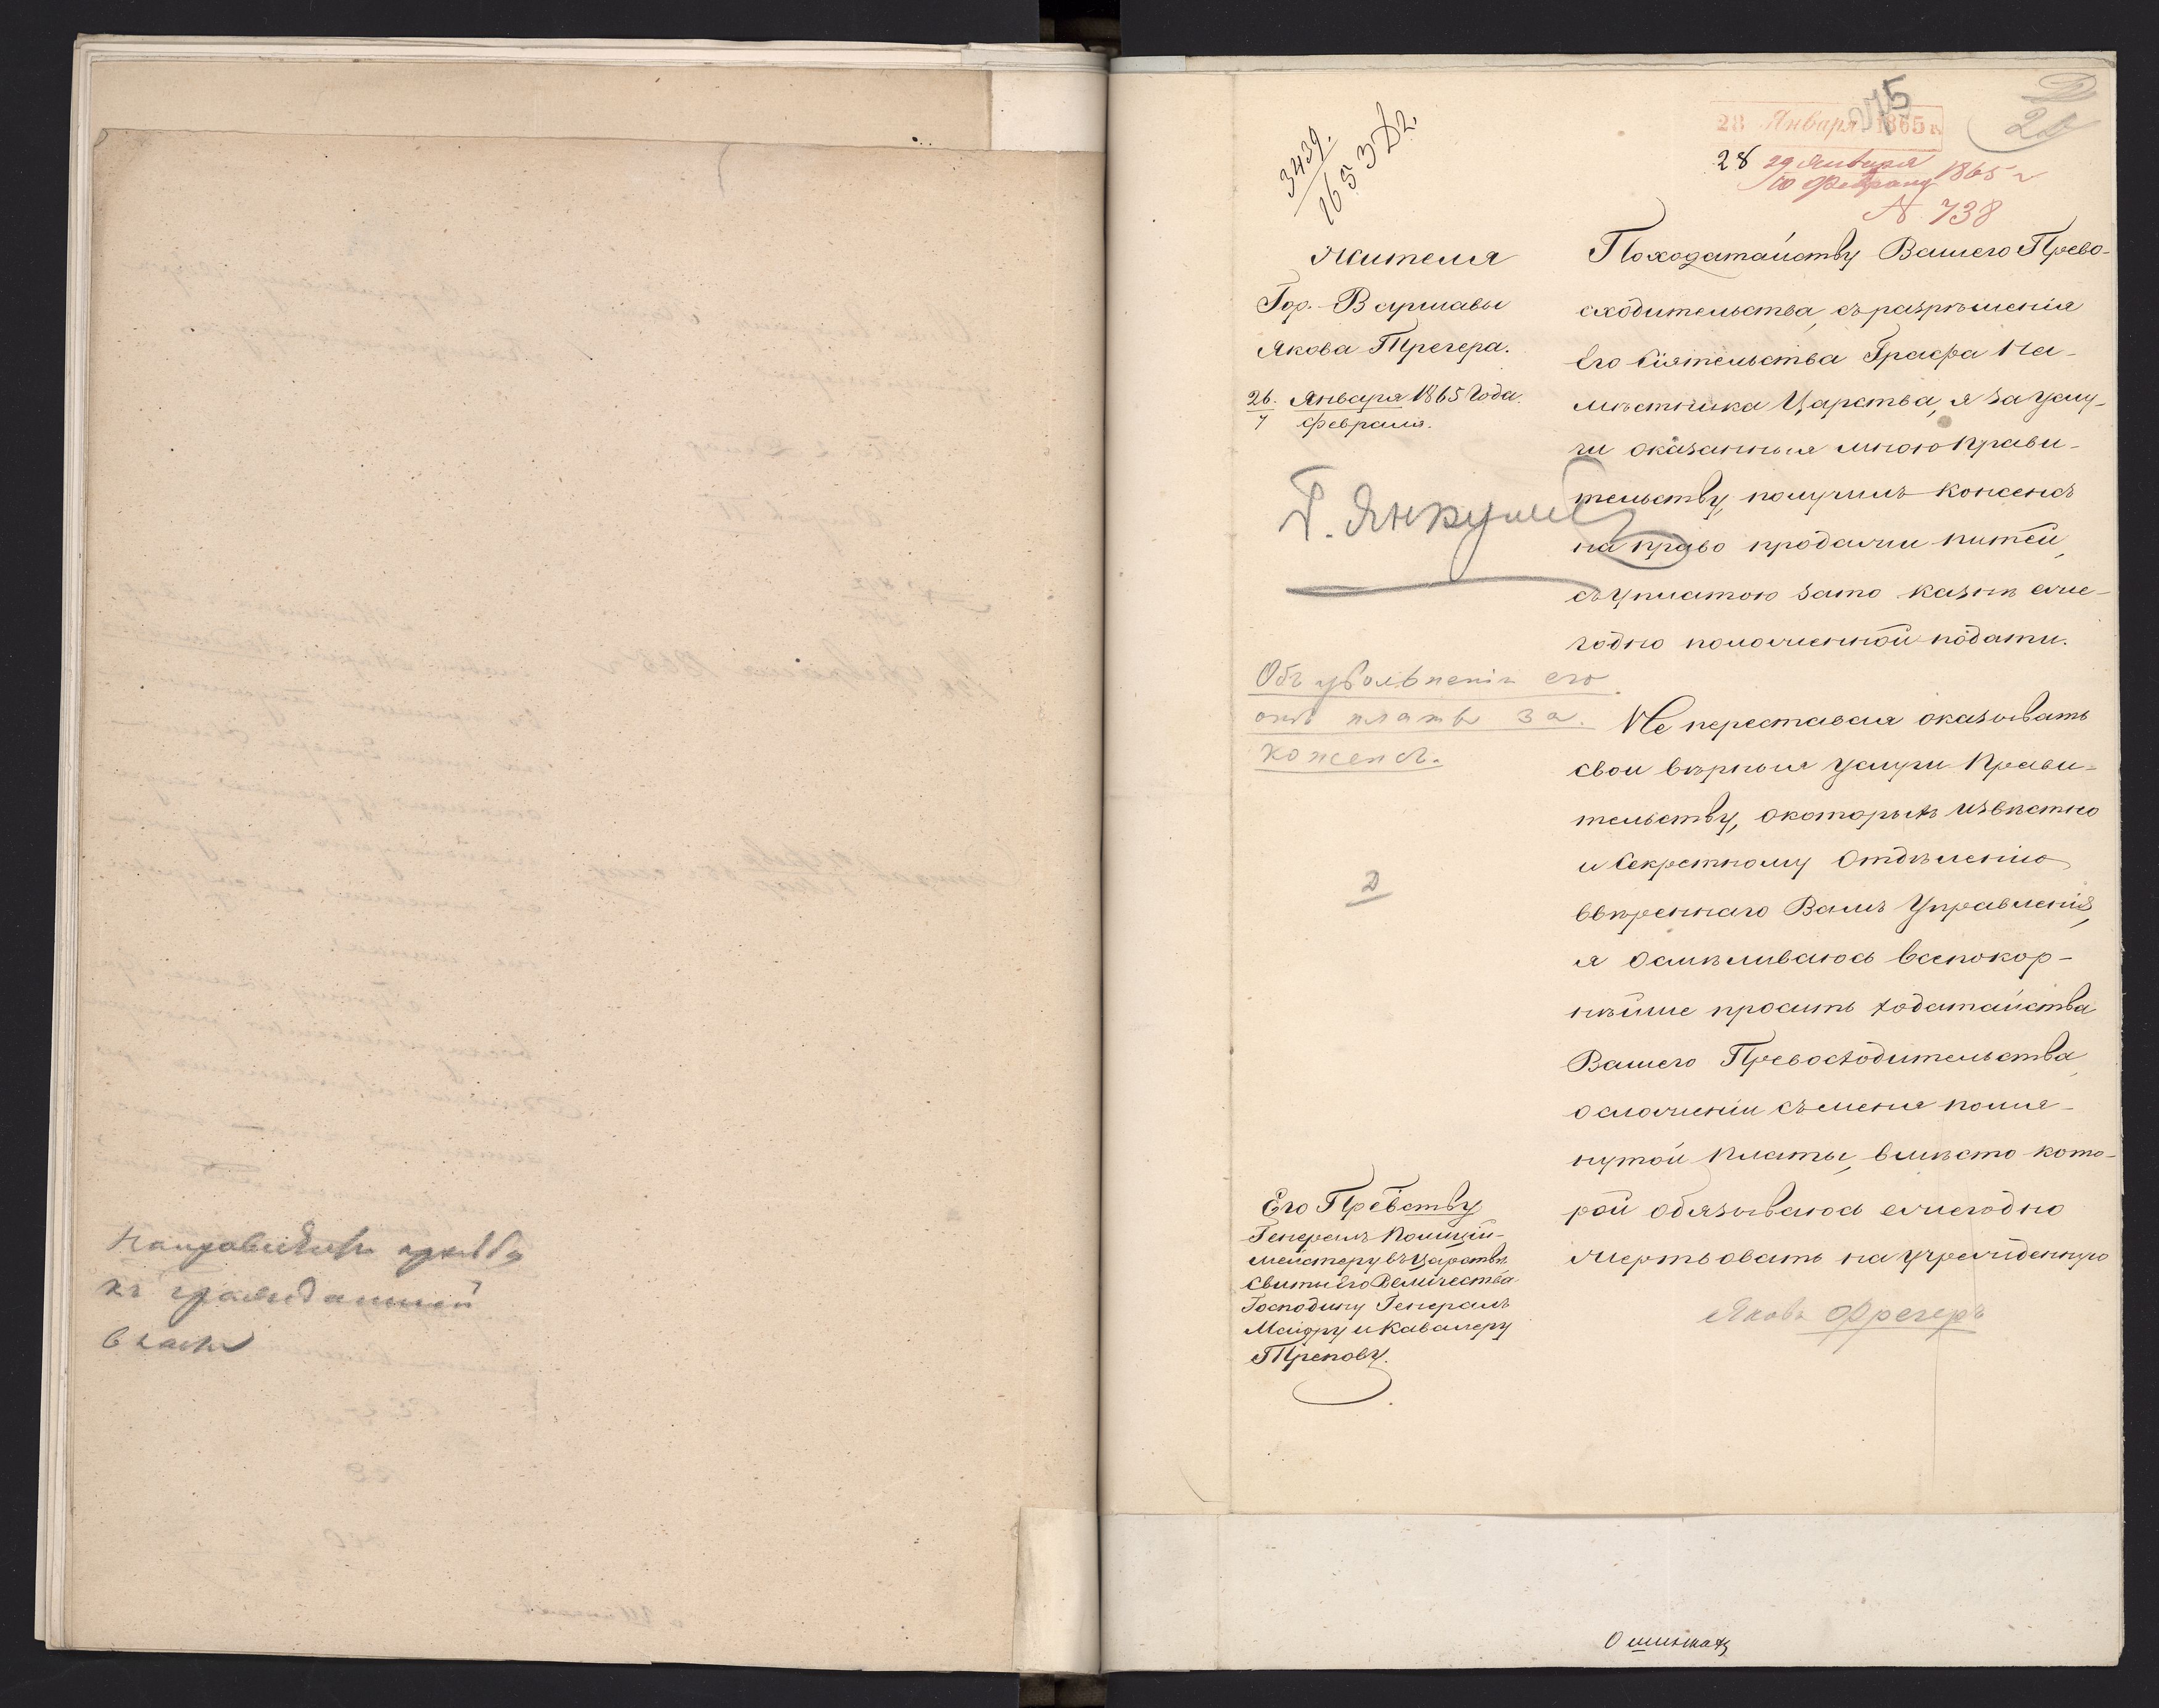 къ гражданской
власти
3439.
165 3 Д2.
275
28 Января 1865 г.
28 29 Января
10 Февраля 1865 г
N 738
Жителя
Гор. Варшавы
Якова Трегера.
26. Января 1865 Года.
7 Февраля.
Г. Янкулио
Объ увольненіи его
отъ платы за
консенсъ.
Д
Его Прев̃ству
Генералъ Полиціи-
мейстеру въ Царствѣ
Свиты Его Величества
Господину Генералъ
Маіору и Кавалеру
Трепову.
По ходатайству Вашего Прево-
сходительства, съ разрѣшенія
Его Сіятельства Графа На-
мѣстника Царства, я за услу-
ги оказанныя мною Прави-
тельству, получилъ консенсъ
на право продажи питей,
съ уплатою за то казнѣ еже-
годно положенной подати.
Не переставая оказывать
свои вѣрныя услуги Прави-
тельству, о которыхъ извѣстно
и Секретному Отдѣленію
ввѣреннаго Вамъ Управленія,
я осмѣливаюсь всепокор-
нѣйше просить ходатайства
Вашего Превосходительства,
о сложеніи съ меня помя-
нутой платы, вмѣсто кото-
рой обязываюсь ежегодно
жертвовать на учрежденную
Яковъ Фрегеръ
О шинкахъ